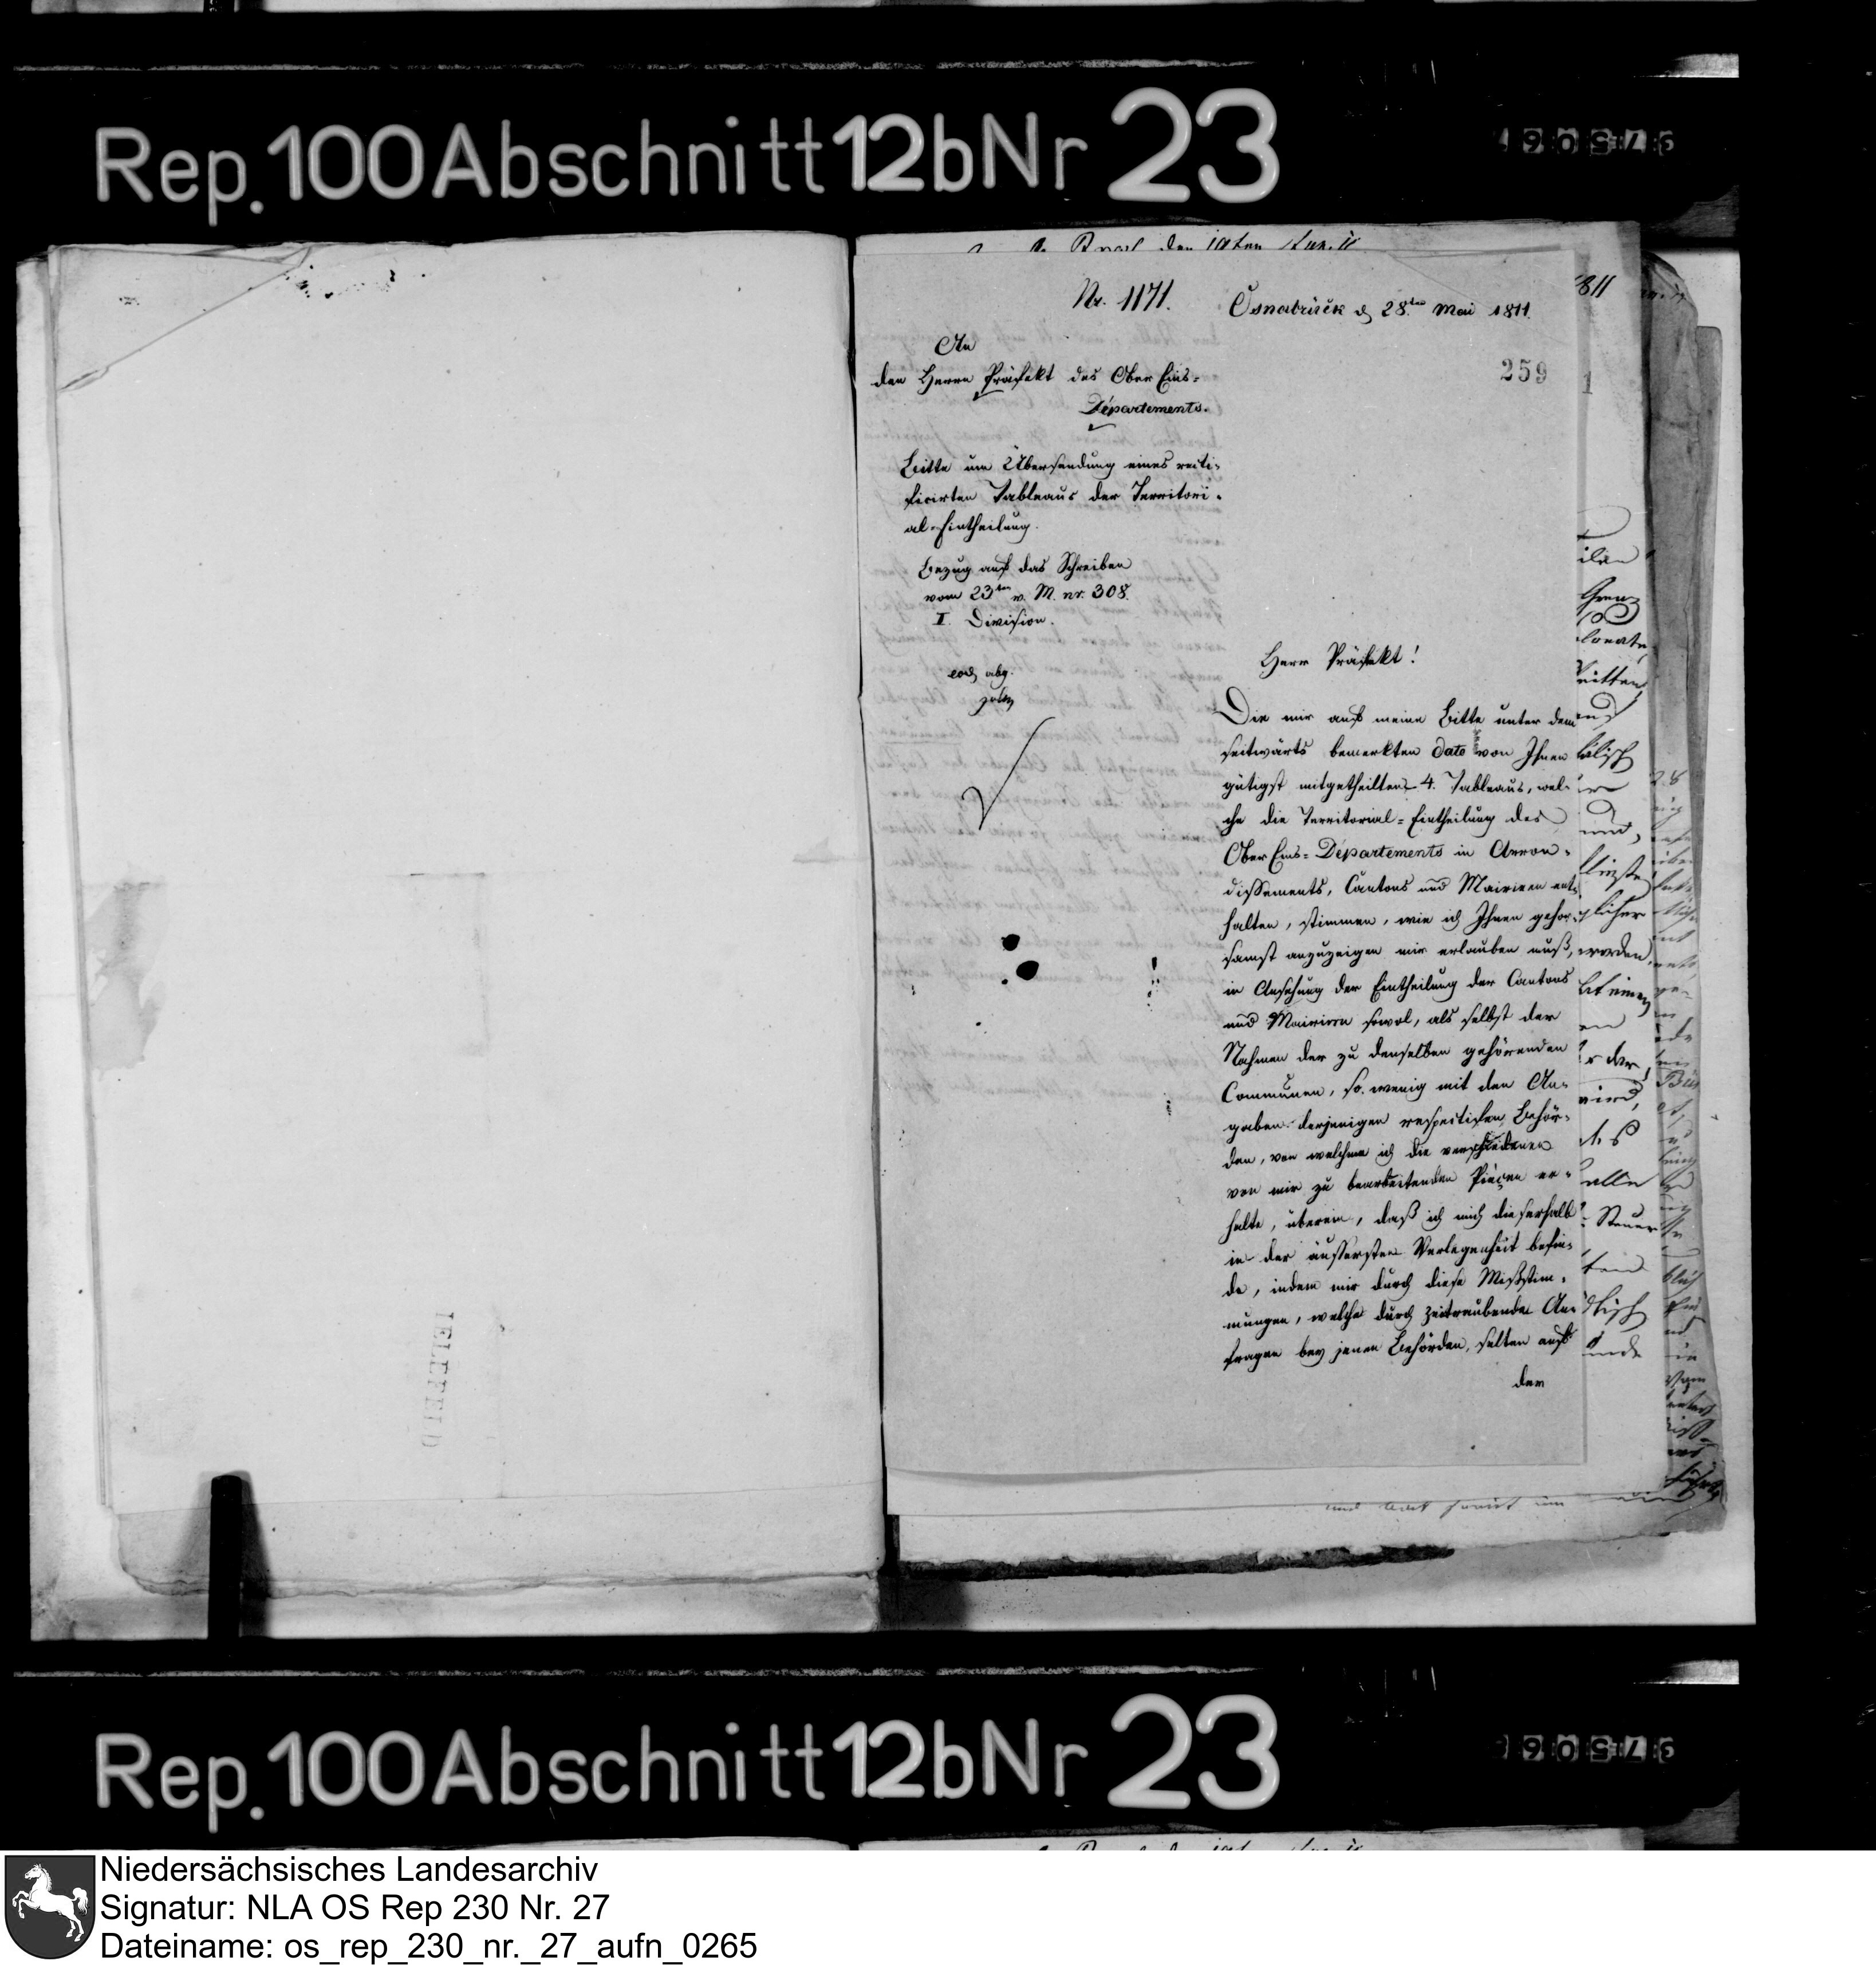 Rep. 100 Abschnitt 12b Nr 23
Nr. 1171.
Osnabrück d 28.ten Mai 1811.
259
An
den Herrn Präfekt des Ober Ems-
Départements.
Bitte um Übersendung eines recti-
ficirten Tableaus der Territori-
al-Eintheilung.
Bezug auf das Schreiben
vom 23ten v. M. nr. 308.
I. Division.
eod abg.
Herr Präfekt!
Die mir auf meine Bitte unter dem
seitwärts bemerkten dato von Ihnen
gütigst mitgetheilten 4. Tableaus, wel-
che die Territorial-Eintheilung des
Ober Ems-Départements in Arron-
dissements, Cantons und Mairieen ent-
halten, stimmen, wie ich Ihnen gehor-
samst anzuzeigen mir erlauben muß,
in Ansehung der Eintheilung der Cantons
und Mairieen sowol, als selbst der
Nahmen der zu denselben gehörenden
Communen, so wenig mit den An-
gaben derjenigen respectifen Behör-
den, von welchen ich die verschiedenen
von mir zu bearbeitenden Piècen er-
halte, überein, daß ich mich dieserhalb
in der äussersten Verlegenheit befin-
de, indem mir durch diese Mißstim-
mungen, welche durch zeitraubende An-
fragen bey jenen Behörden, selten auf
der
1811
Rep. 100 Abschnitt 12b Nr 23
Niedersächsisches Landesarchiv
Signatur: NLA OS Rep 230 Nr. 27
Dateiname: os_rep_230_nr._27_aufn_0265